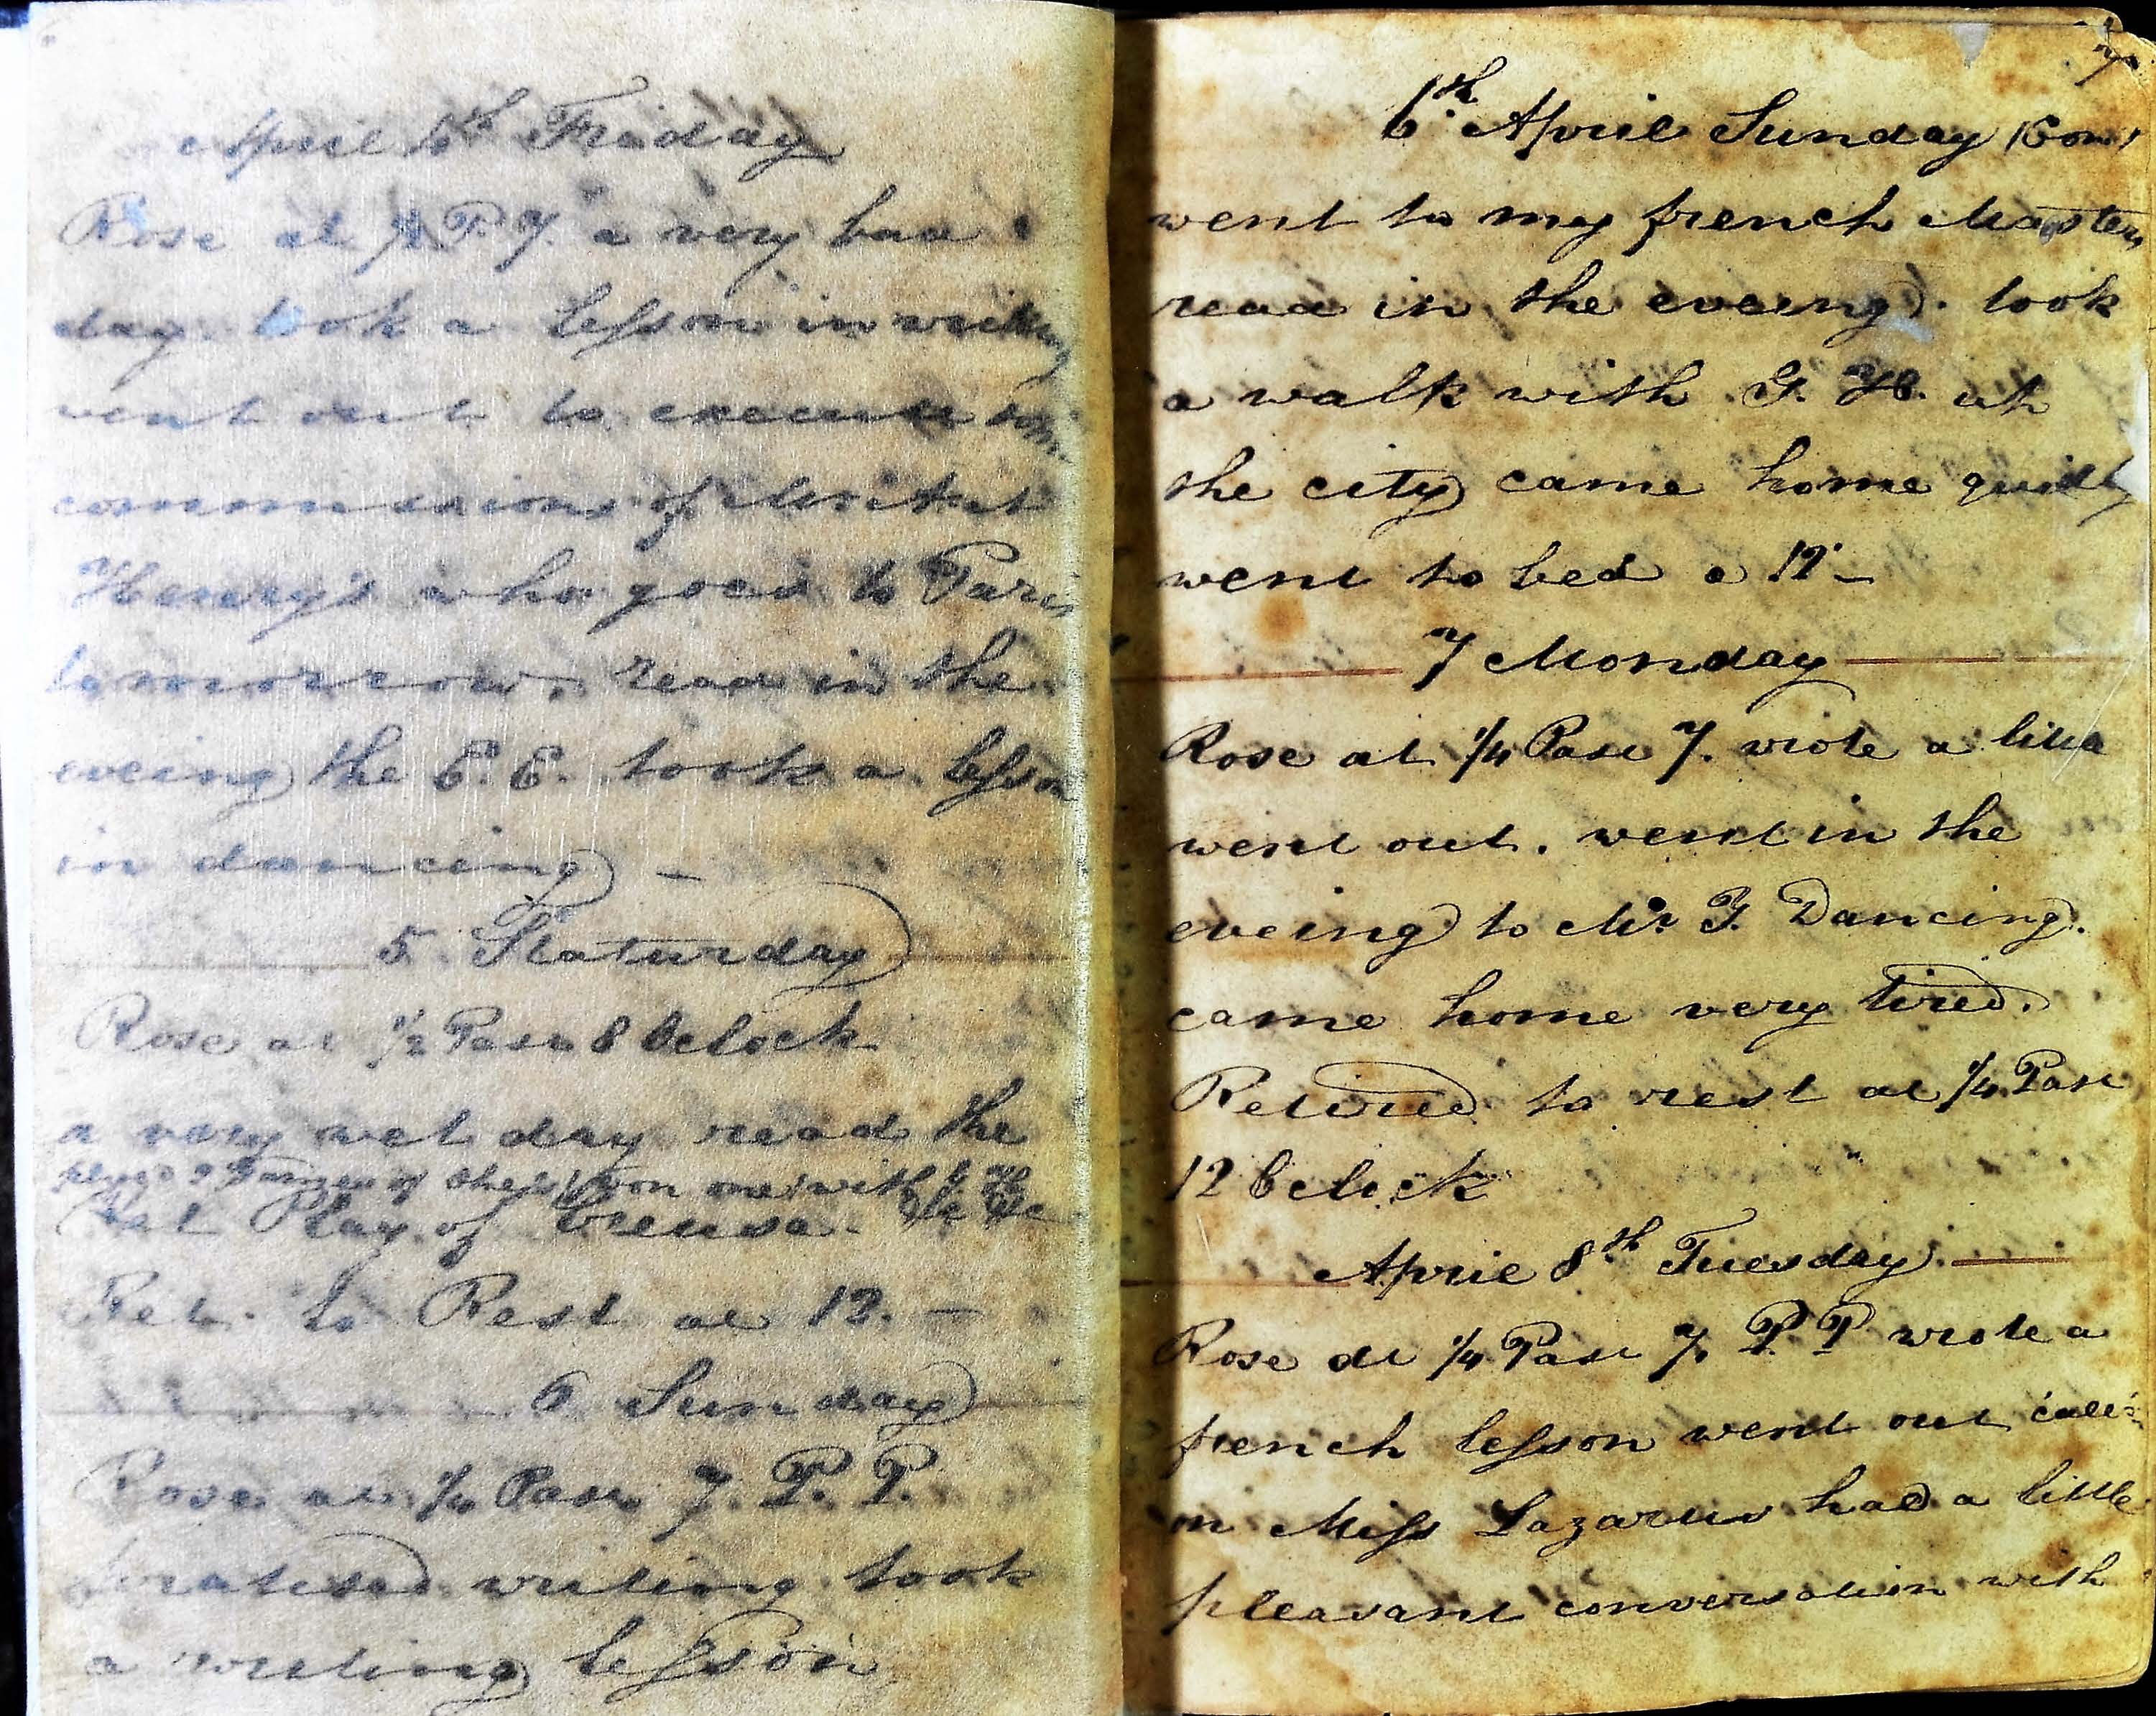 April 4th Friday
Rose at ½ P. 7. a very bad
day. took a lesson in writing
went out to execute som
commissions of
Henry's who goes to Paris
tomorrow. read in the
eveing the E. E. took a lesson
in dancing —
5. Staturday
Rose at ½ Past 8 Oclock
a very wet day read the
of chess won one with
Play of
Ret. to Rest at 12. —
6 Sunday
Rose at ¼ Past 7. P. P.
pratised writing took
a writing lesson
6th April Sunday (Con)
went to my french Master
read in the eveeng. took
a walk with G. H. at
the city came home
went to bed a 12 —
7 Monday
Rose at ¼ Past 7. wrote a
went out. went in the
eveing to Mr. Y. Dancing.
came home very tired.
Retired to rest at ¼ Past
12 Oclock
April 8th Tuesday —
Rose at ¼ Past 7. P. P wrote a
french lesson went out
on Miss Lazarus had a little
pleasant conversation with